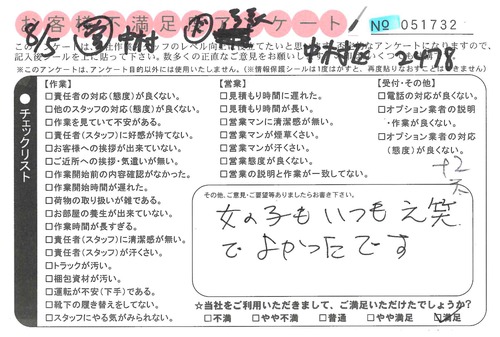 お客様不満足度アンケート
No 051732
8/5
中村区 2478
このアンケートは、
記入後シールを上に貼って下さい。数多くの正直なご意見をお願いし
※このアンケートは、アンケート目的以外には使用いたしません。(※情報保護シールは1度はがすと、再度貼りなおすことはできません)
チェックリスト
【作業】
□責任者の対応(態度)が良くない。
□他のスタッフの対応(態度)が良くない。
□作業を見ていて不安がある。
□責任者(スタッフ)に好感が持てない。
□お客様への挨拶が出来ていない。
□ご近所への挨拶・気遣いが無い。
□作業開始前の内容確認がなかった。
□作業開始時間が遅れた。
□荷物の取り扱いが雑である。
□お部屋の養生が出来ていない。
□作業時間が長すぎる。
□責任者(スタッフ)に清潔感が無い。
□責任者(スタッフ)が汗くさい。
□トラックが汚い。
□梱包資材が汚い。
□運転が不安(下手)である。
□靴下の履き替えをしてない。
□スタッフにやる気がみられない。
【営業】
□見積もり時間に遅れた。
□見積もり時間が長い。
□営業マンに清潔感が無い。
□営業マンが煙草くさい。
□営業マンが汗くさい。
□営業態度が良くない。
□営業の説明と作業が一致してない。
【受付・その他】
□電話の対応が良くない。
□オプション業者の説明・作業が良くない。
□オプション業者の対応(態度)が良くない。
+2
その他、ご意見・ご要望等ありましたらお書き下さい。
女の子もいつも え笑
でよかったです
☆当社をご利用いただきまして、ご満足いただけたでしょうか?
□不満 □やや不満 □普通 □やや満足 ☑満足